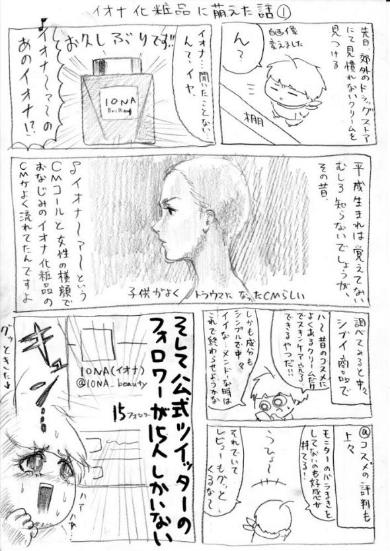 イオナ化粧品に萌えた話①
先日郊外のドラッグストア
にて見慣れないクリームを
見つける
自画像
変えました
ん？
棚
イオナ…聞いたことない
んて、イヤ、
とてもお久しぶりです!!
イオナ〜ア〜〜の
あのイオナ!?
IONA
平成生まれは覚えてない
むしろ知らないでしょうが、
その昔、
♪イオナ〜ア〜という
CMコールと女性の横顔で
おなじみのイオナ化粧品の
CMがよく流れてたんですよ
子供がよくトラウマになったCMらしい
調べてみると中々
シブイ商品で
ハ〜昔のコスメに
よくあるクリームだ!!
できるやつだ…!!
しかも成分
シンプルで中々
イイな…
これで終わらせようかな
@コスメの評判も
上々
モニターのバラまきを
してないのも好感が
持てる！
うひょ〜
それでいて
レビューもグッと
くるな〜
そして公式ツイッターの
フォロワーが15人しかいない
IONA(イオナ)
@IONA_beauty
15フォロワー
キュン…
グッときた
ハァ
ハァ